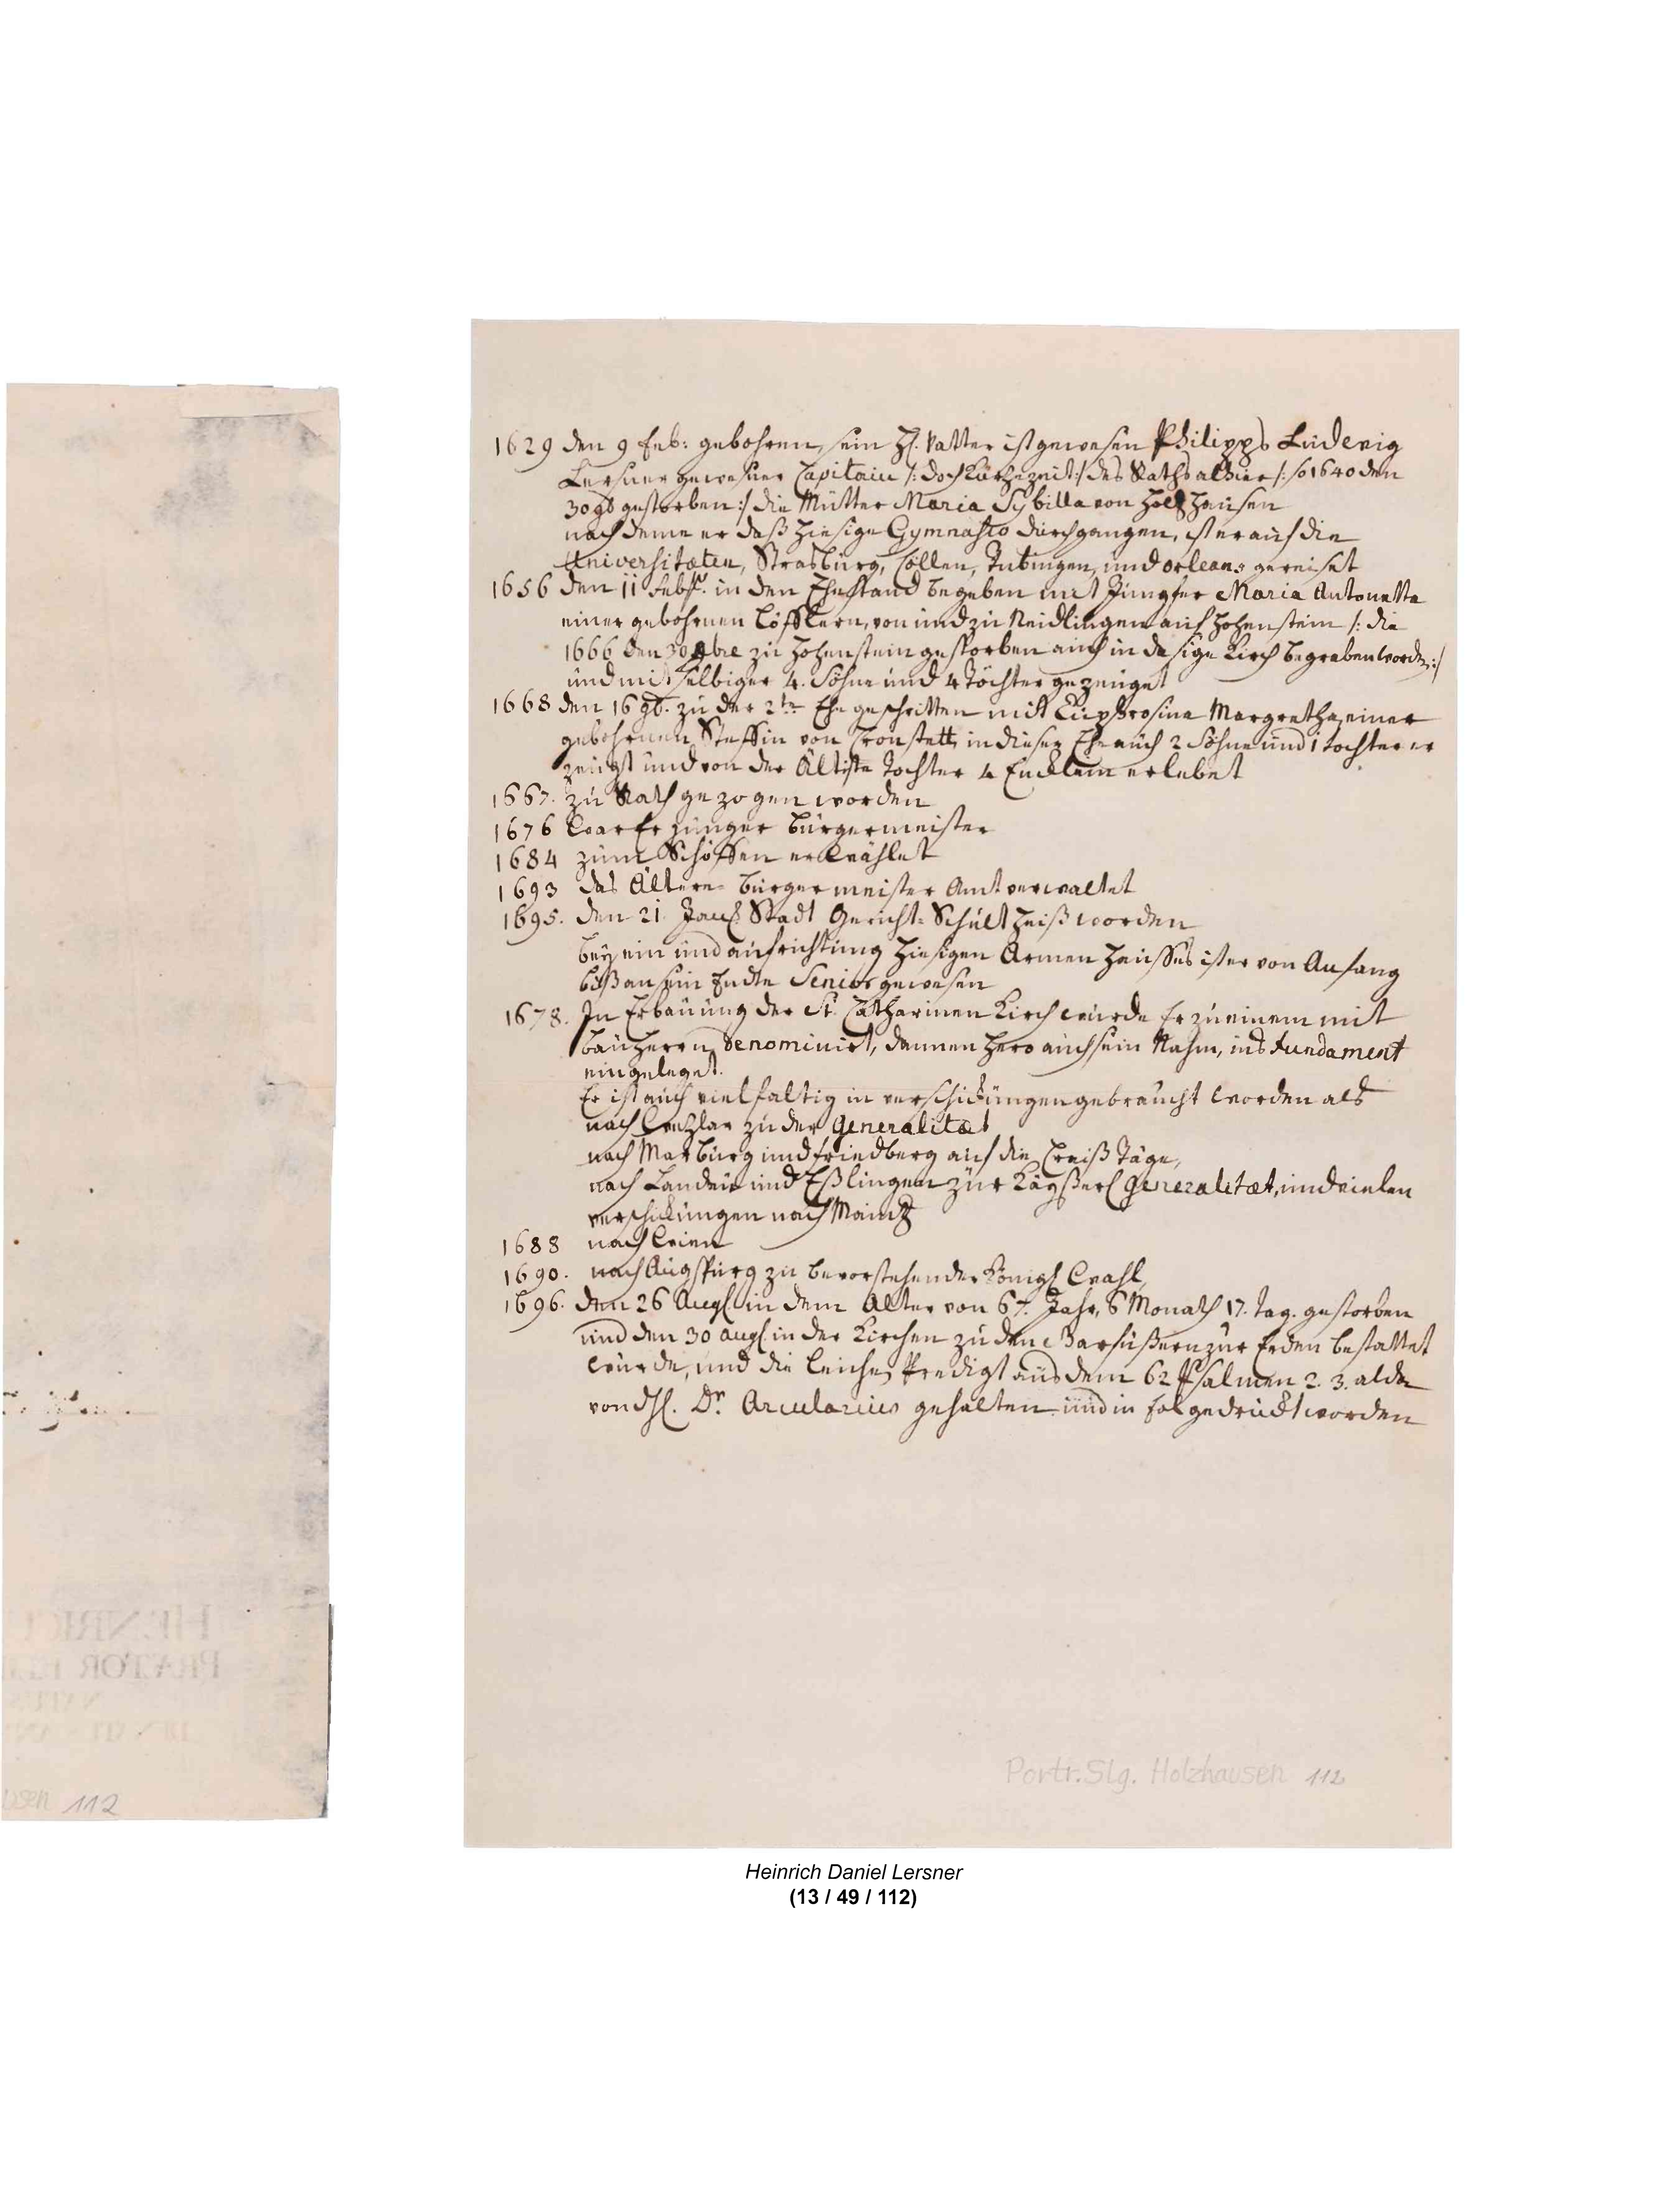 1629 den 9 Feb: gebohren, sein H. Vatter ist gewesen Philipps Ludewig
Lersner gewesner Capitain /: doch kurtze zeit :/ des Raths alhier /: so 1640 den
30 9b gestorben :/ die Mutter Maria Sybilla von Holtzhausen
nach deme er daß hiesige Gymnasio durchgangen, ist er auf die
Universitæten, Strasburg, Cöllen, Tubingen, und orleans gereiset
1656 den 11 Febr. in den Ehestand begeben mit Jungfer Maria Antonetta
einer gebohrnen Löfflern, von und zu Neidlingen auf Hohenstein /: die
1666 den 30 bre zu Hohenstein gestorben auch in dasige Kirch begraben worden :/
und mit selbiger 4. Söhne und 4 Töchter gezeuget
1668 den 16 9b. zu der 2te Ehe geschritten mit Euphrosina Margretha, einer
gebohrnen Steffin von Cronstett, in dieser Ehe auch 2 Söhne und 1 tochter er
zeugt und von der Ältiste Tochter 4 Encklein erlebet
1667. zu Rath gezogen worden
1676 war Er junger Burgermeister
1684 zum Schöffen erwählet
1693 das Ältere- burgermeister Amt verwaltet
1695. den 21. Jan. Stadt Gericht- Schultheiß worden
bey ein und aufrichtung hiesigen Armen Hausses ist er von Anfang
biß an sein Endte Senior gewesen
1678. In Erbauung der St. Catharinen Kirch wurde Er zu einem mit
bauherrn denominirt, dannen hero auch sein Nahm, ins Fundament
eingeleget.
Er ist auch vielfaltig in verschickungen gebraucht worden als
nach Wetzlar zu der Generalitæt
nach Marburg und Friedberg auf die Creiß Täge,
nach Landau und Eßlingen zur Kayßerl Generalitæt, und vielen
verschickungen nach Maintz
1688 nach Wien
1690. nach Augspurg zu bevorstehender Königl Wahl,
1696. den 26 Augl. in dem Alter von 67. Jahr, 6 Monath 17. Tag. gestorben
und den 30 augl. in der Kirchen zu den Barfüßern zur Erden bestattet
wurde, und die Leichen Predigt aus dem 62 Psalmen 2. 3. alda
von H. Dr. Arcularius gehalten und in fol gedruckt worden
HENRIC
PRÆTOR
NATUS
usen 112
Portr. Slg. Holzhausen 112
Heinrich Daniel Lersner
(13 / 49 / 112)